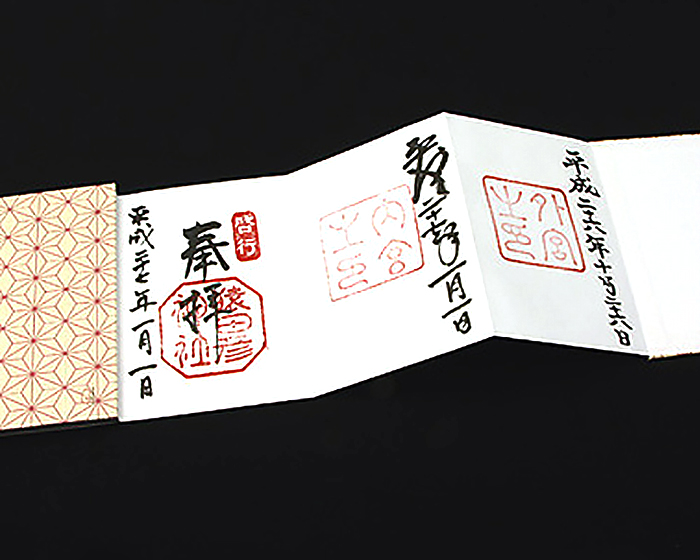 平成二十六年十月二十六日
外宮
之印
平成二十七年一月一日
内宮
之印
啓行
奉拝
猿田彦
神社
平成二十七年一月一日